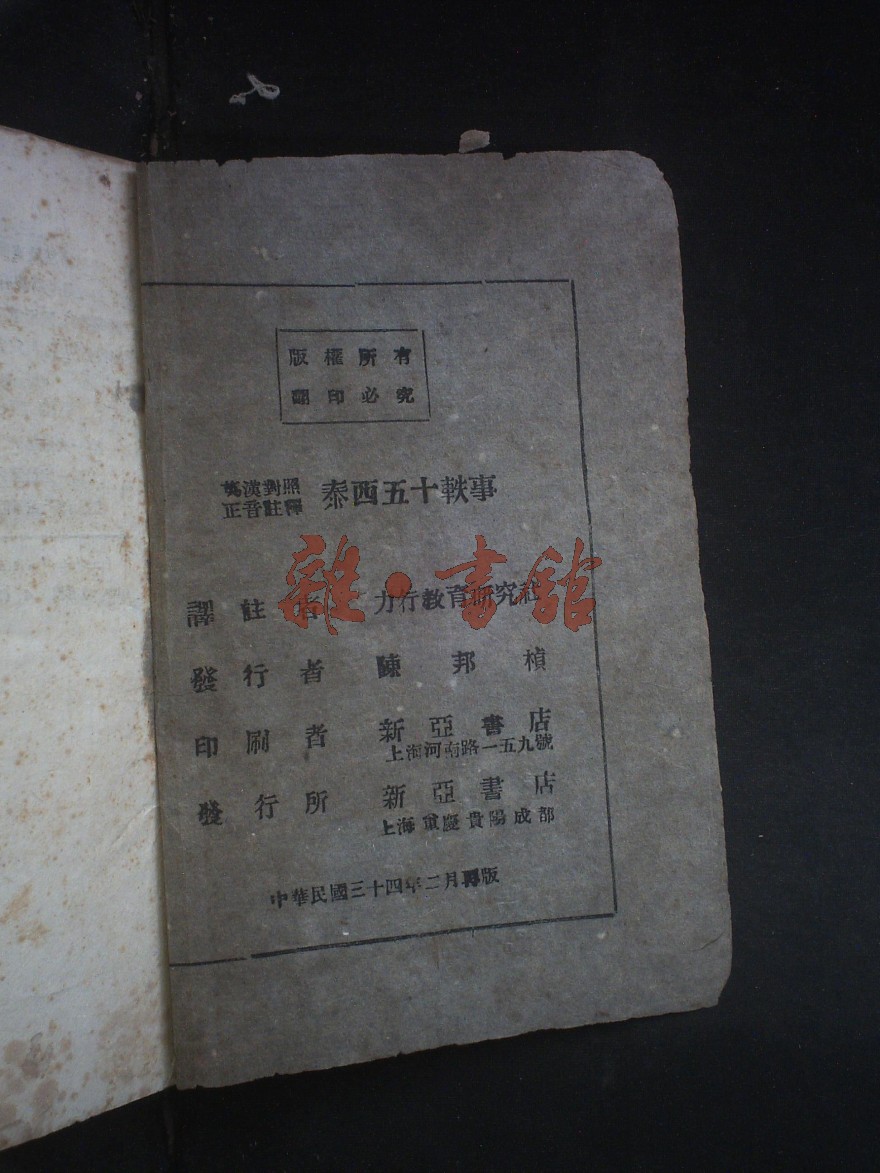 版權所有
翻印必究
英漢對照
正音註釋
泰西五十軼事
譯註者 力行教育研究社
發行者 陳邦楨
印刷者 新亞書店
上海河南路一五九號
發行所 新亞書店
上海重慶貴陽成都
中華民國三十四年二月再版
雜·書館